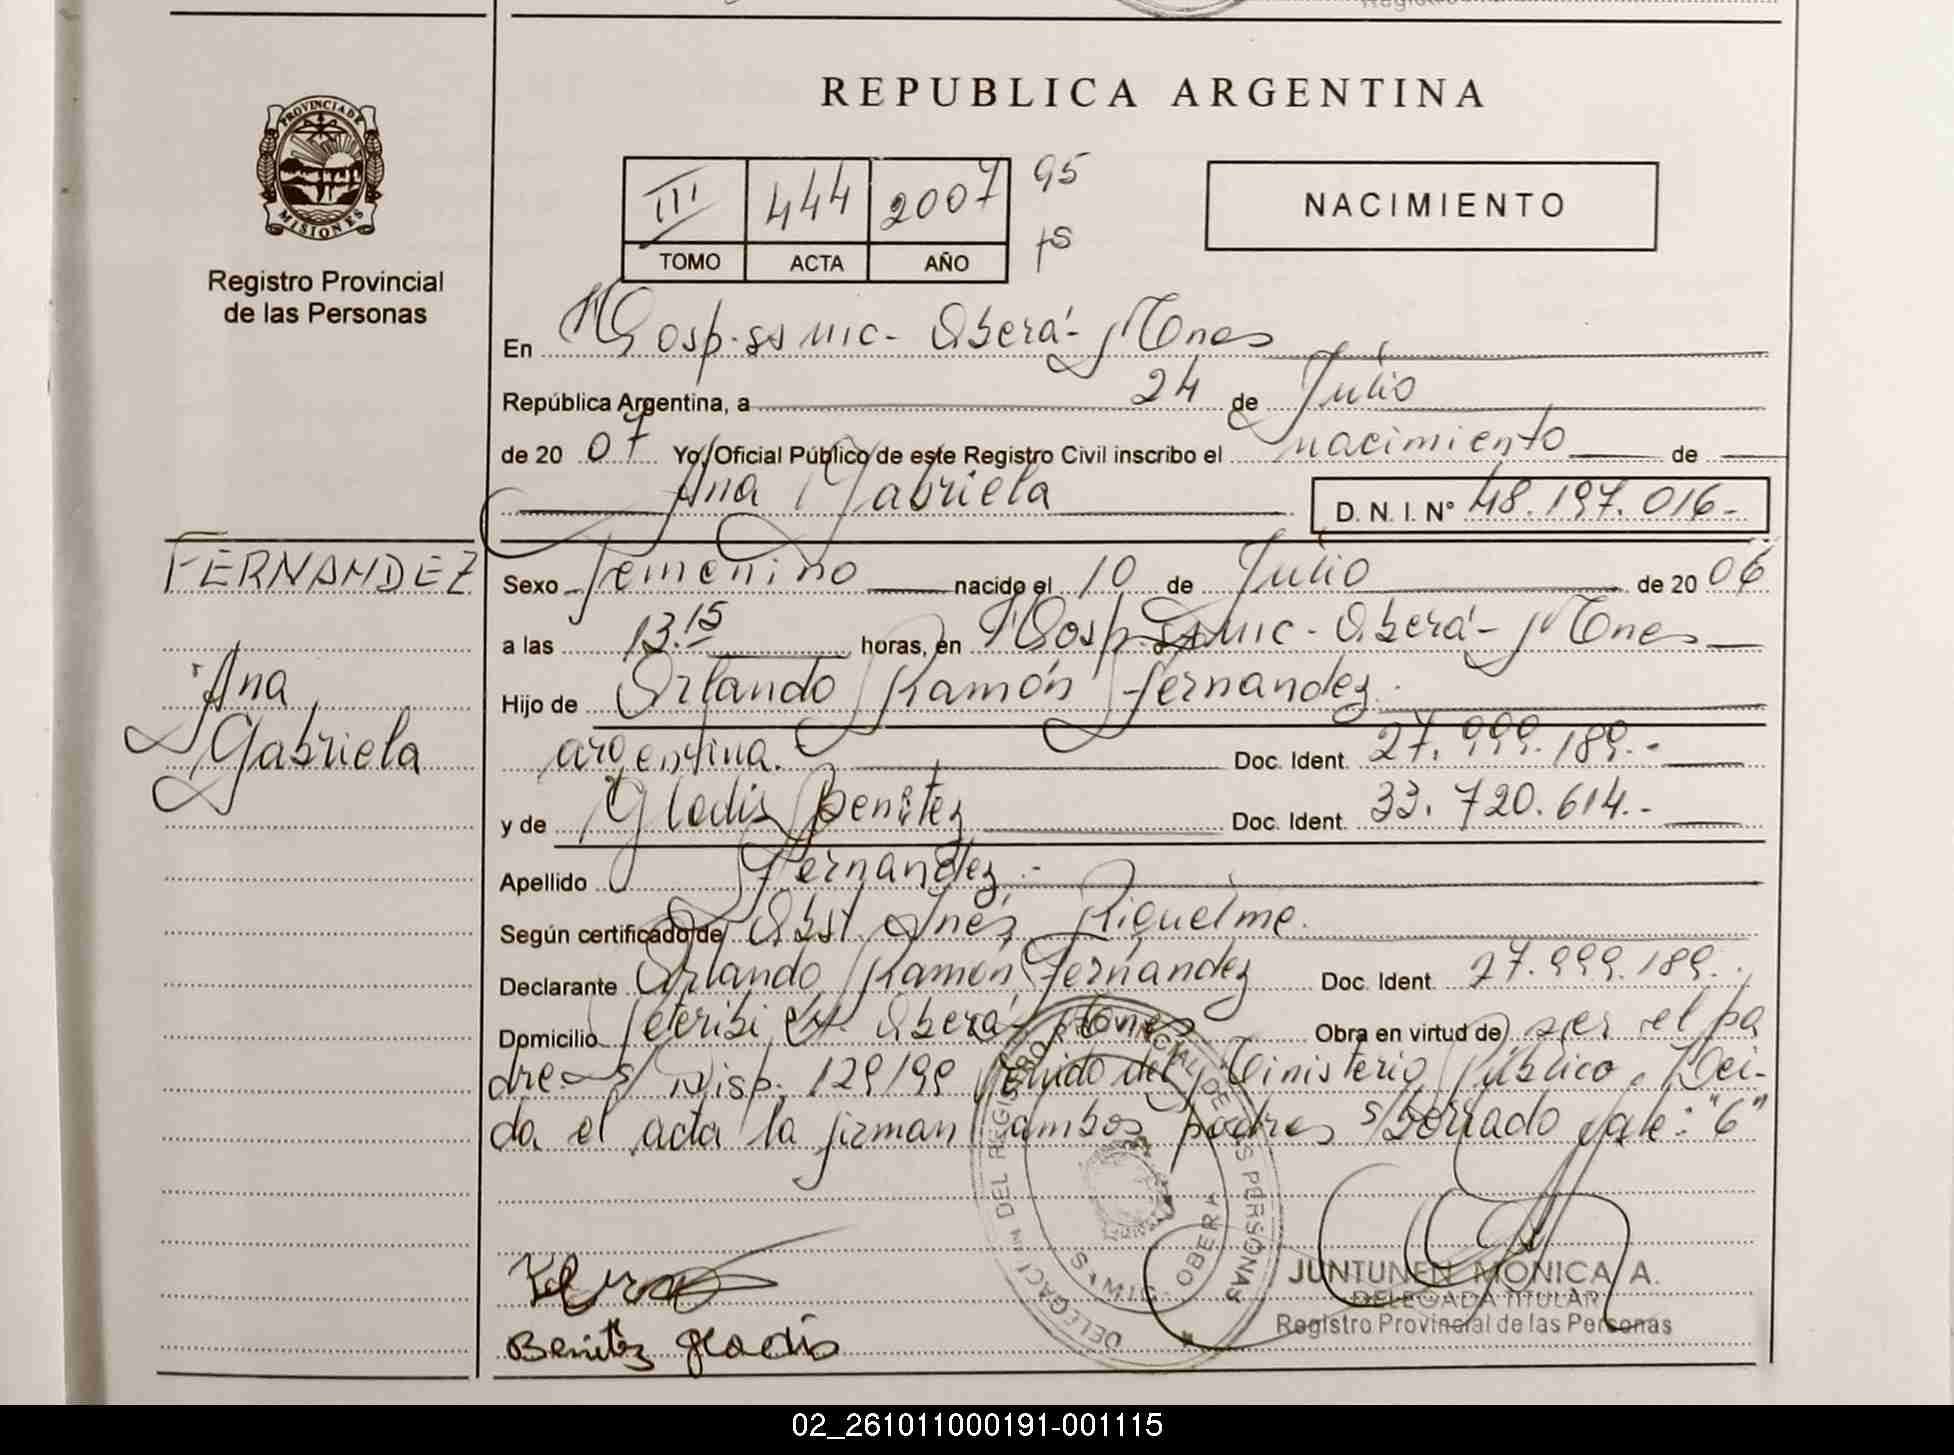 REPUBLICA ARGENTINA
PROVINCIA DE
MISIONES
Registro Provincial
de las Personas
III 444 2007 95
TOMO ACTA AÑO
NACIMIENTO
En Hosp. ss mic - Oberá - Mnes
República Argentina, a 24 de Julio
de 20 07 Yo, Oficial Público de este Registro Civil inscribo el nacimiento de
Ana Gabriela D. N. I. Nº 48.197.016-
FERNANDEZ
Ana
Gabriela
Sexo femenino nacido el 10 de Julio de 20 06
a las 13.15 horas, en Hosp. ss mic - Oberá - Mnes
Hijo de Orlando Ramón Fernandez
argentina. Doc. Ident. 27.999.189.-
y de Gladis Benitez Doc. Ident. 33.720.614.-
Apellido Fernandez.-
Según certificado de Obst. Inés Riquelme.
Declarante Orlando Ramón Fernandez Doc. Ident. 27.999.189.
Domicilio Oberá - Mnes Obra en virtud de ser el pa
dre s/ Disp. 129/99 del Ministerio Público. Lei-
da el acta la firman ambos padres s/borrado vale: "6"
DELEGACION DEL REGISTRO PROVINCIAL DE LAS PERSONAS
OBERA
Benitez Gladis
JUNTUNEN MONICA A.
DELEGADA TITULAR
Registro Provincial de las Personas
02_261011000191-001115